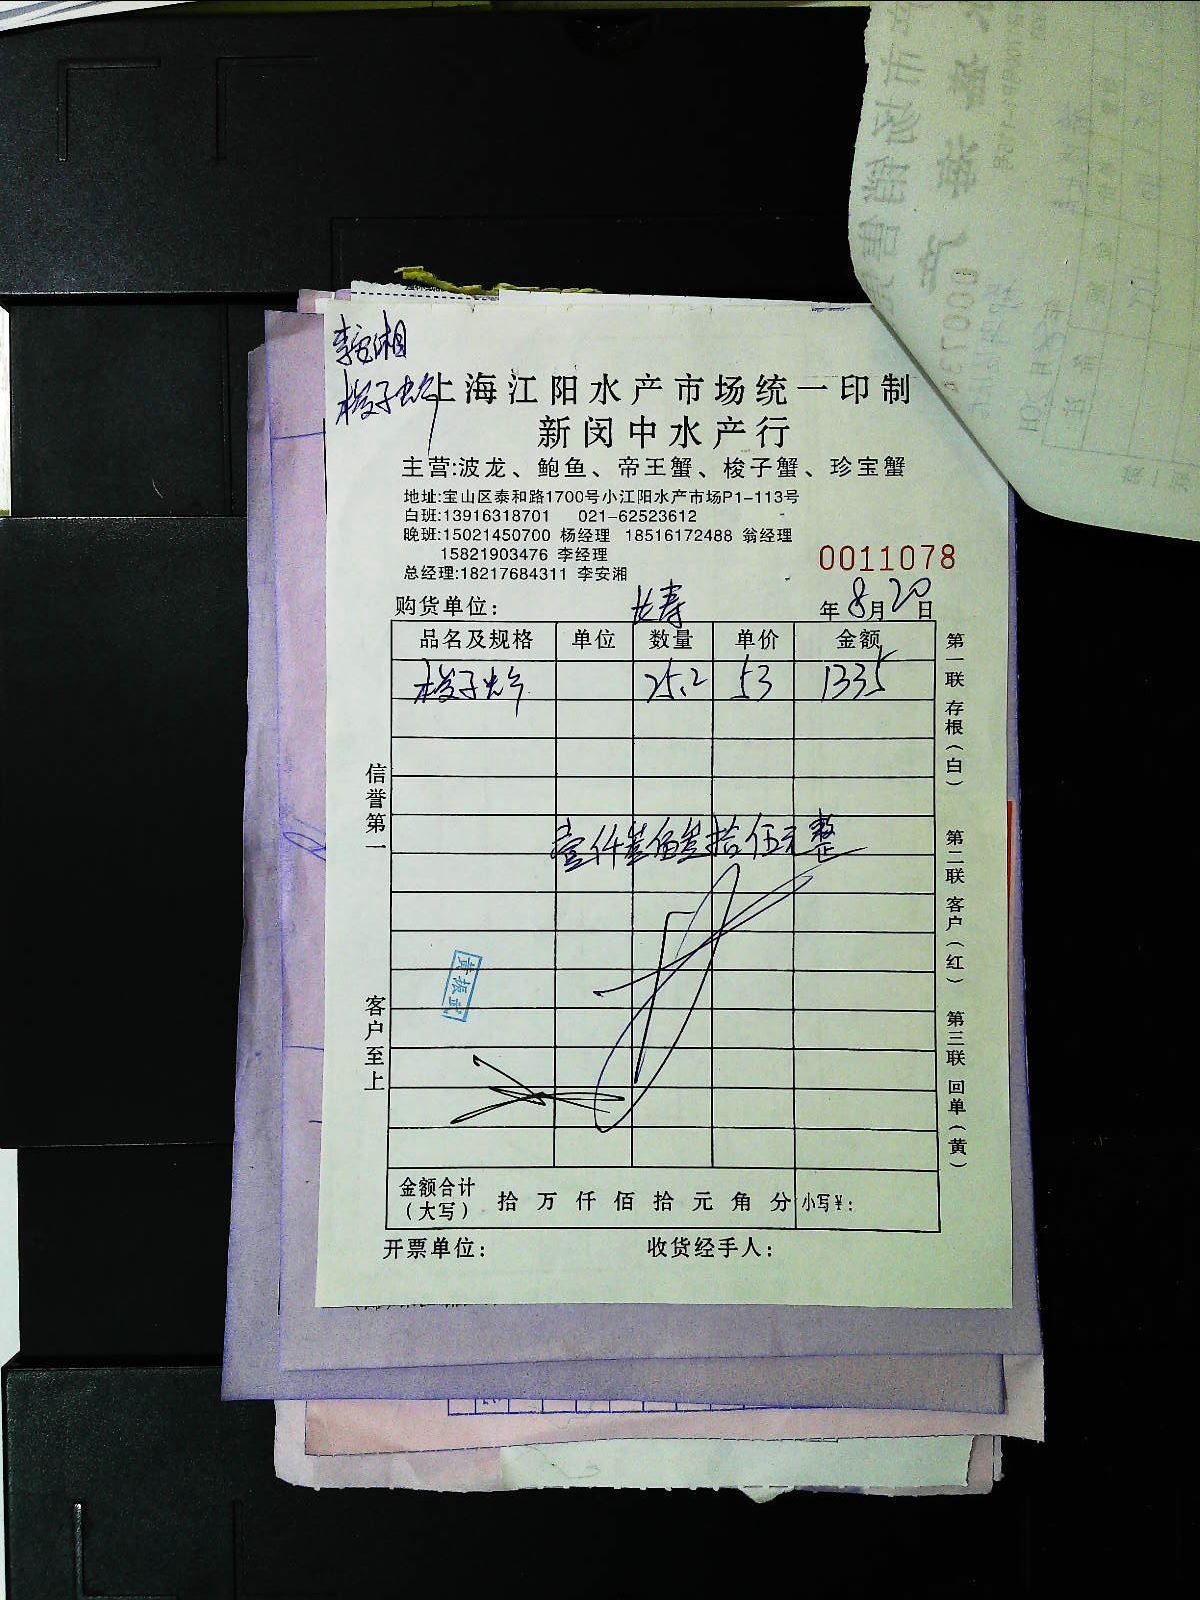 李安湘
梭子蚧
上海江阳水产市场统一印制
新闵中水产行
主营:波龙、鲍鱼、帝王蟹、梭子蟹、珍宝蟹
地址:宝山区泰和路1700号小江阳水产市场P1-113号
白班:13916318701 021-62523612
晚班:15021450700 杨经理 18516172488 翁经理
15821903476 李经理
总经理:18217684311 李安湘
0011078
购货单位: 长寿 年8月20日
品名及规格 单位 数量 单价 金额
梭子蚧 25.2 53 1335
壹仟叁佰叁拾伍元整
黄振武
金额合计(大写) 拾 万 仟 佰 拾 元 角 分 小写¥:
开票单位: 收货经手人:
信誉第一 客户至上
第一联 存根(白) 第二联 客户(红) 第三联 回单(黄)